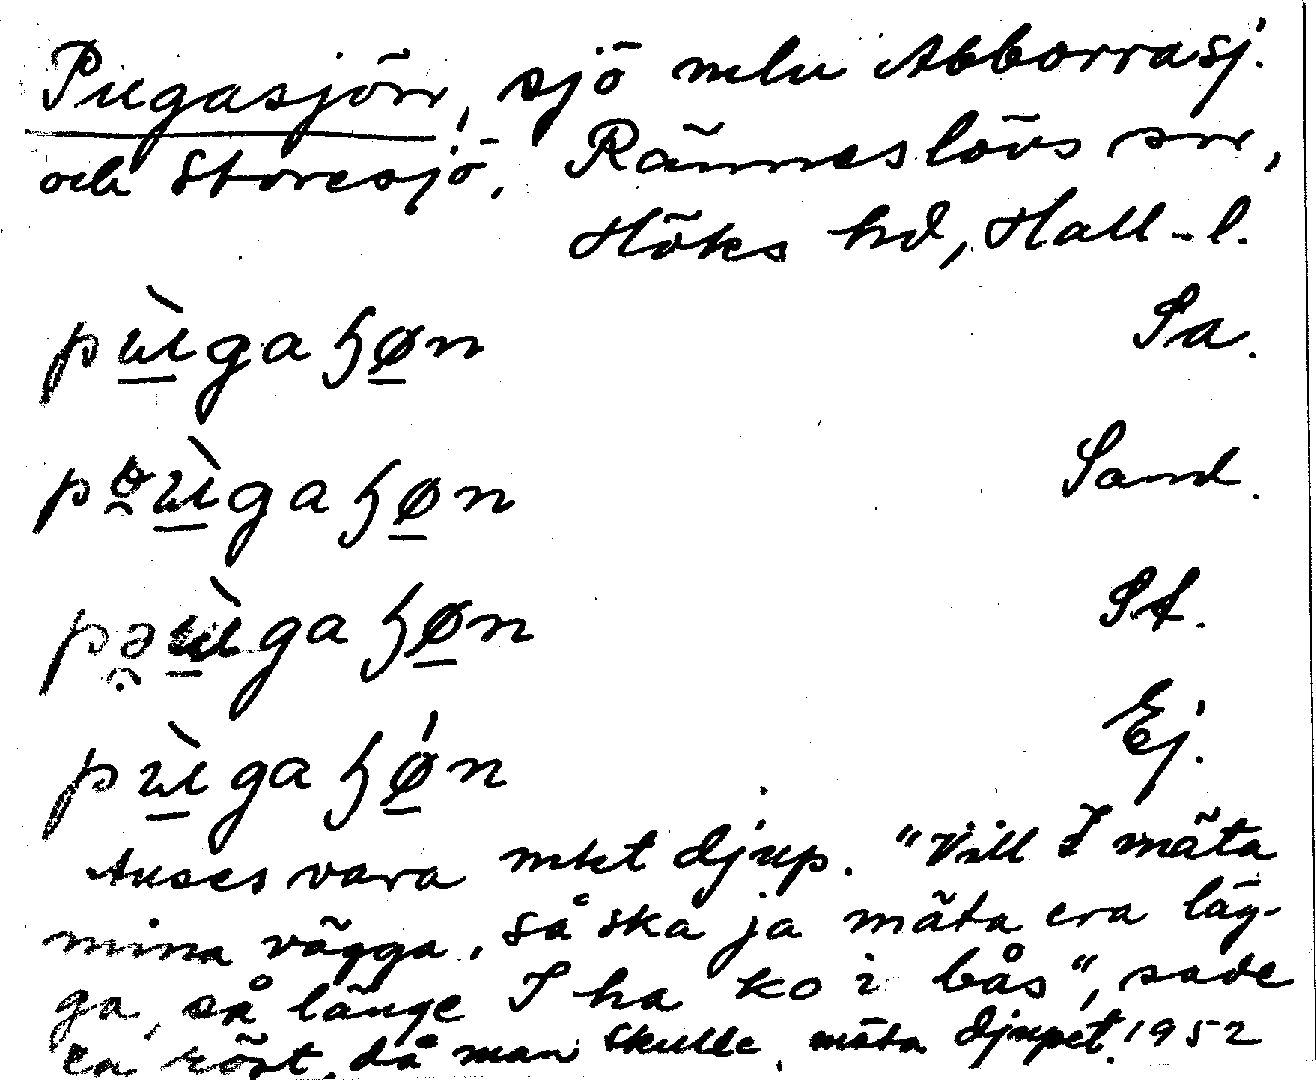 Pugasjön, sjö mln Abborrasj.
och Storesjö, Ränneslövs sn,
Höks hd, Hall-l.
pùgaɧøn Sa.
Sand.
St.
pùgaɧǿn Ej.
Anses vara mkt djup. "Vill I mäta
mina vägga, så ska ja mäta era läg-
ga, så länge I ha ko i bås", sade
en röst, då man skulle mäta djupet. 1952